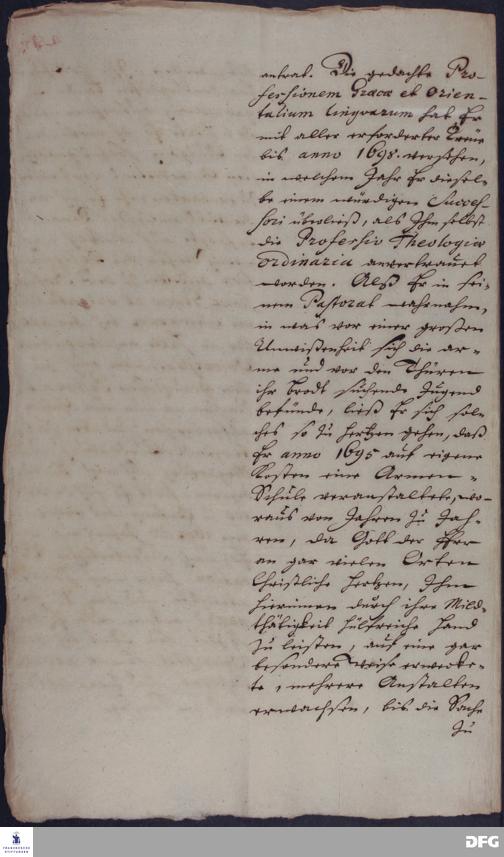 antrat. Die gedachte Pro-
fessionem Græcæ et Orien-
talium lingvarum hat Er
mit aller erforderter Treue
bis anno 1698. versehen,
in welchem Jahr Er diesel-
be einem würdigen Succes-
sori überließ, als Ihm selbst
die Professio Theologiæ
ordinaria anvertrauet
worden. Alß Er in sei-
nem Pastorat wahrnahm,
in was vor einer großen
Unwißenheit sich die ar-
me und vor den Thüren
ihr Brodt suchende Jugend
befünde, ließ Er sich sol-
ches so zu Hertzen gehen, daß
Er anno 1695 auf eigene
Kosten eine Armen-
Schule veranstaltete, wo-
raus von Jahren zu Jah-
ren, da Gott der Herr
an gar vielen Orten
Christliche Hertzen, Ihm
hierinnen durch ihre Mild-
thätigkeit hülfreiche Hand
zu leisten, auf eine gar
besondere Weise erweck-
te, mehrere Anstalten
erwachsen, bis die Sache
zu
FRANCKESCHE
STIFTUNGEN
DFG